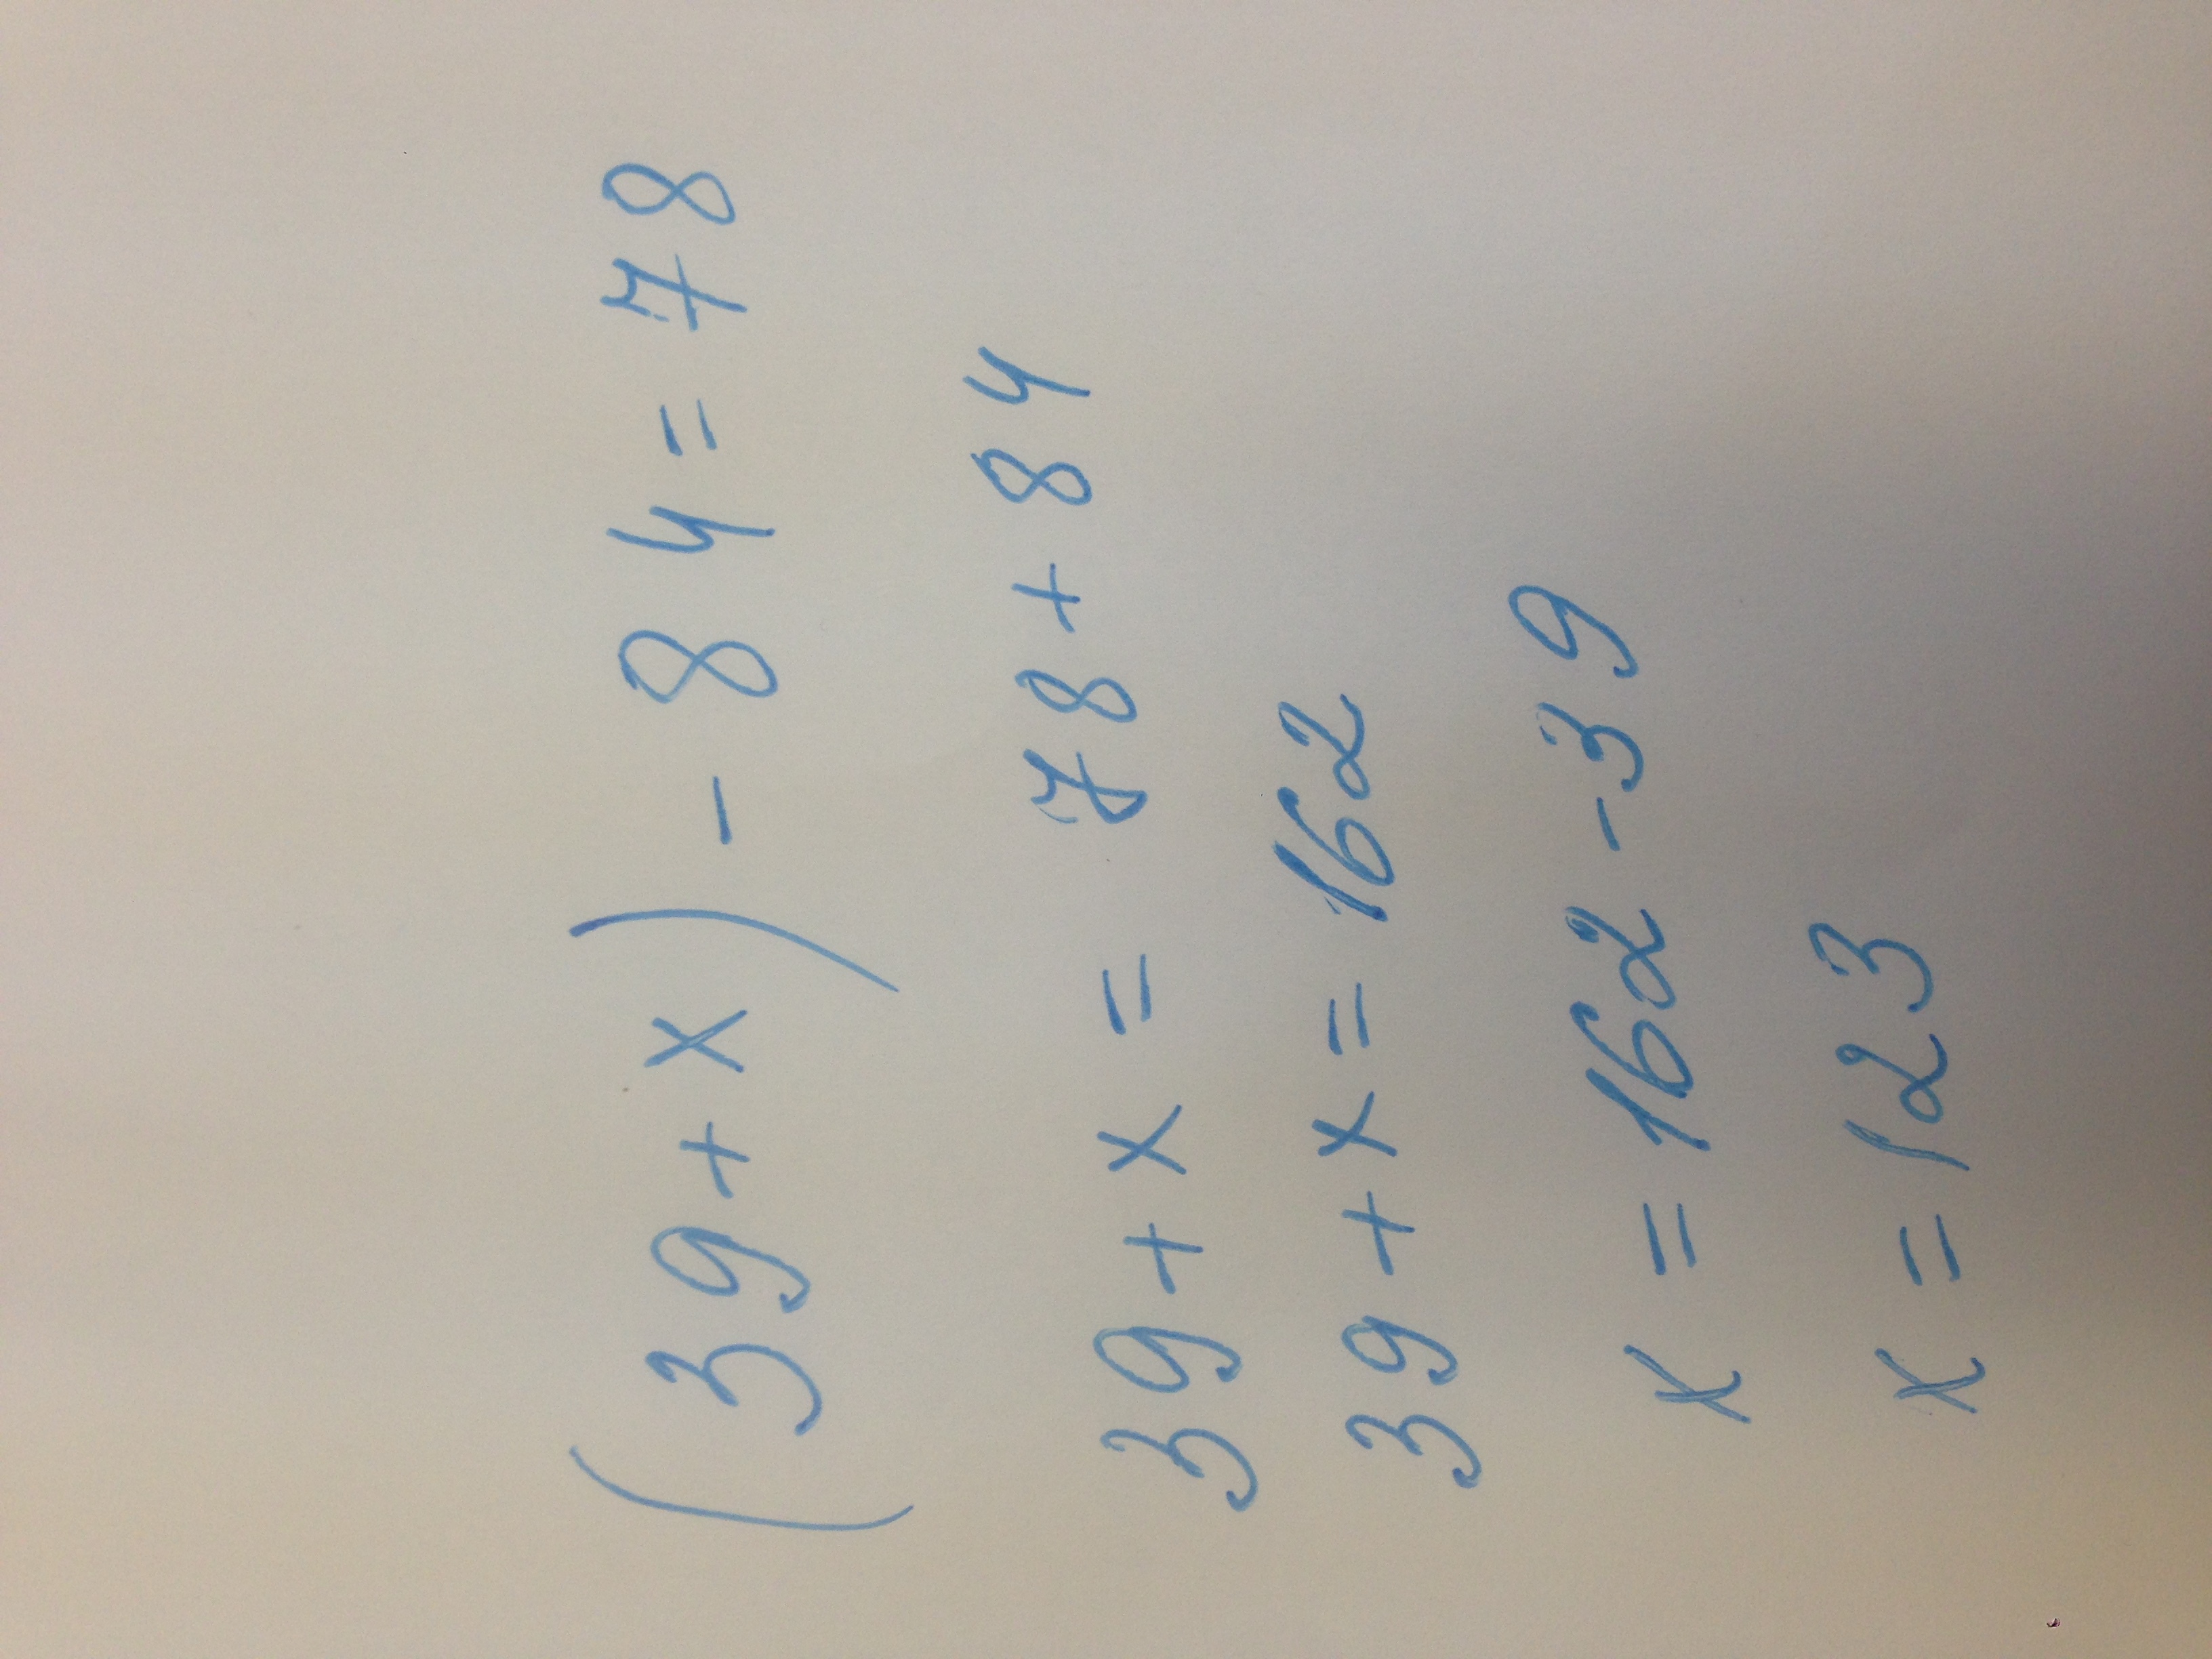 (39+x) - 84 = 78
39+x = 78+84
39+x = 162
x = 162-39
x = 123